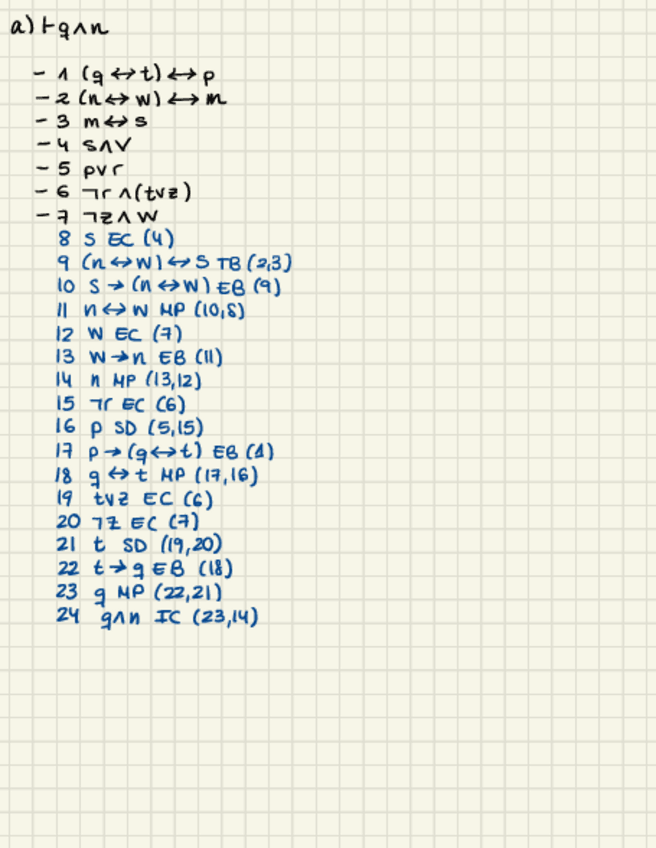 a) ⊢ q∧n
- 1 (q ↔ t) ↔ p
- 2 (n ↔ w) ↔ m
- 3 m ↔ s
- 4 s∧v
- 5 p∨r
- 6 ¬r ∧(t∨z)
- 7 ¬z∧w
8 s EC (4)
9 (n ↔ w) ↔ s TB (2,3)
10 s → (n ↔ w) EB (9)
11 n ↔ w MP (10,8)
12 w EC (7)
13 w → n EB (11)
14 n MP (13,12)
15 ¬r EC (6)
16 p SD (5,15)
17 p → (q ↔ t) EB (1)
18 q ↔ t MP (17,16)
19 t∨z EC (6)
20 ¬z EC (7)
21 t SD (19,20)
22 t → q EB (18)
23 q MP (22,21)
24 q∧n IC (23,14)